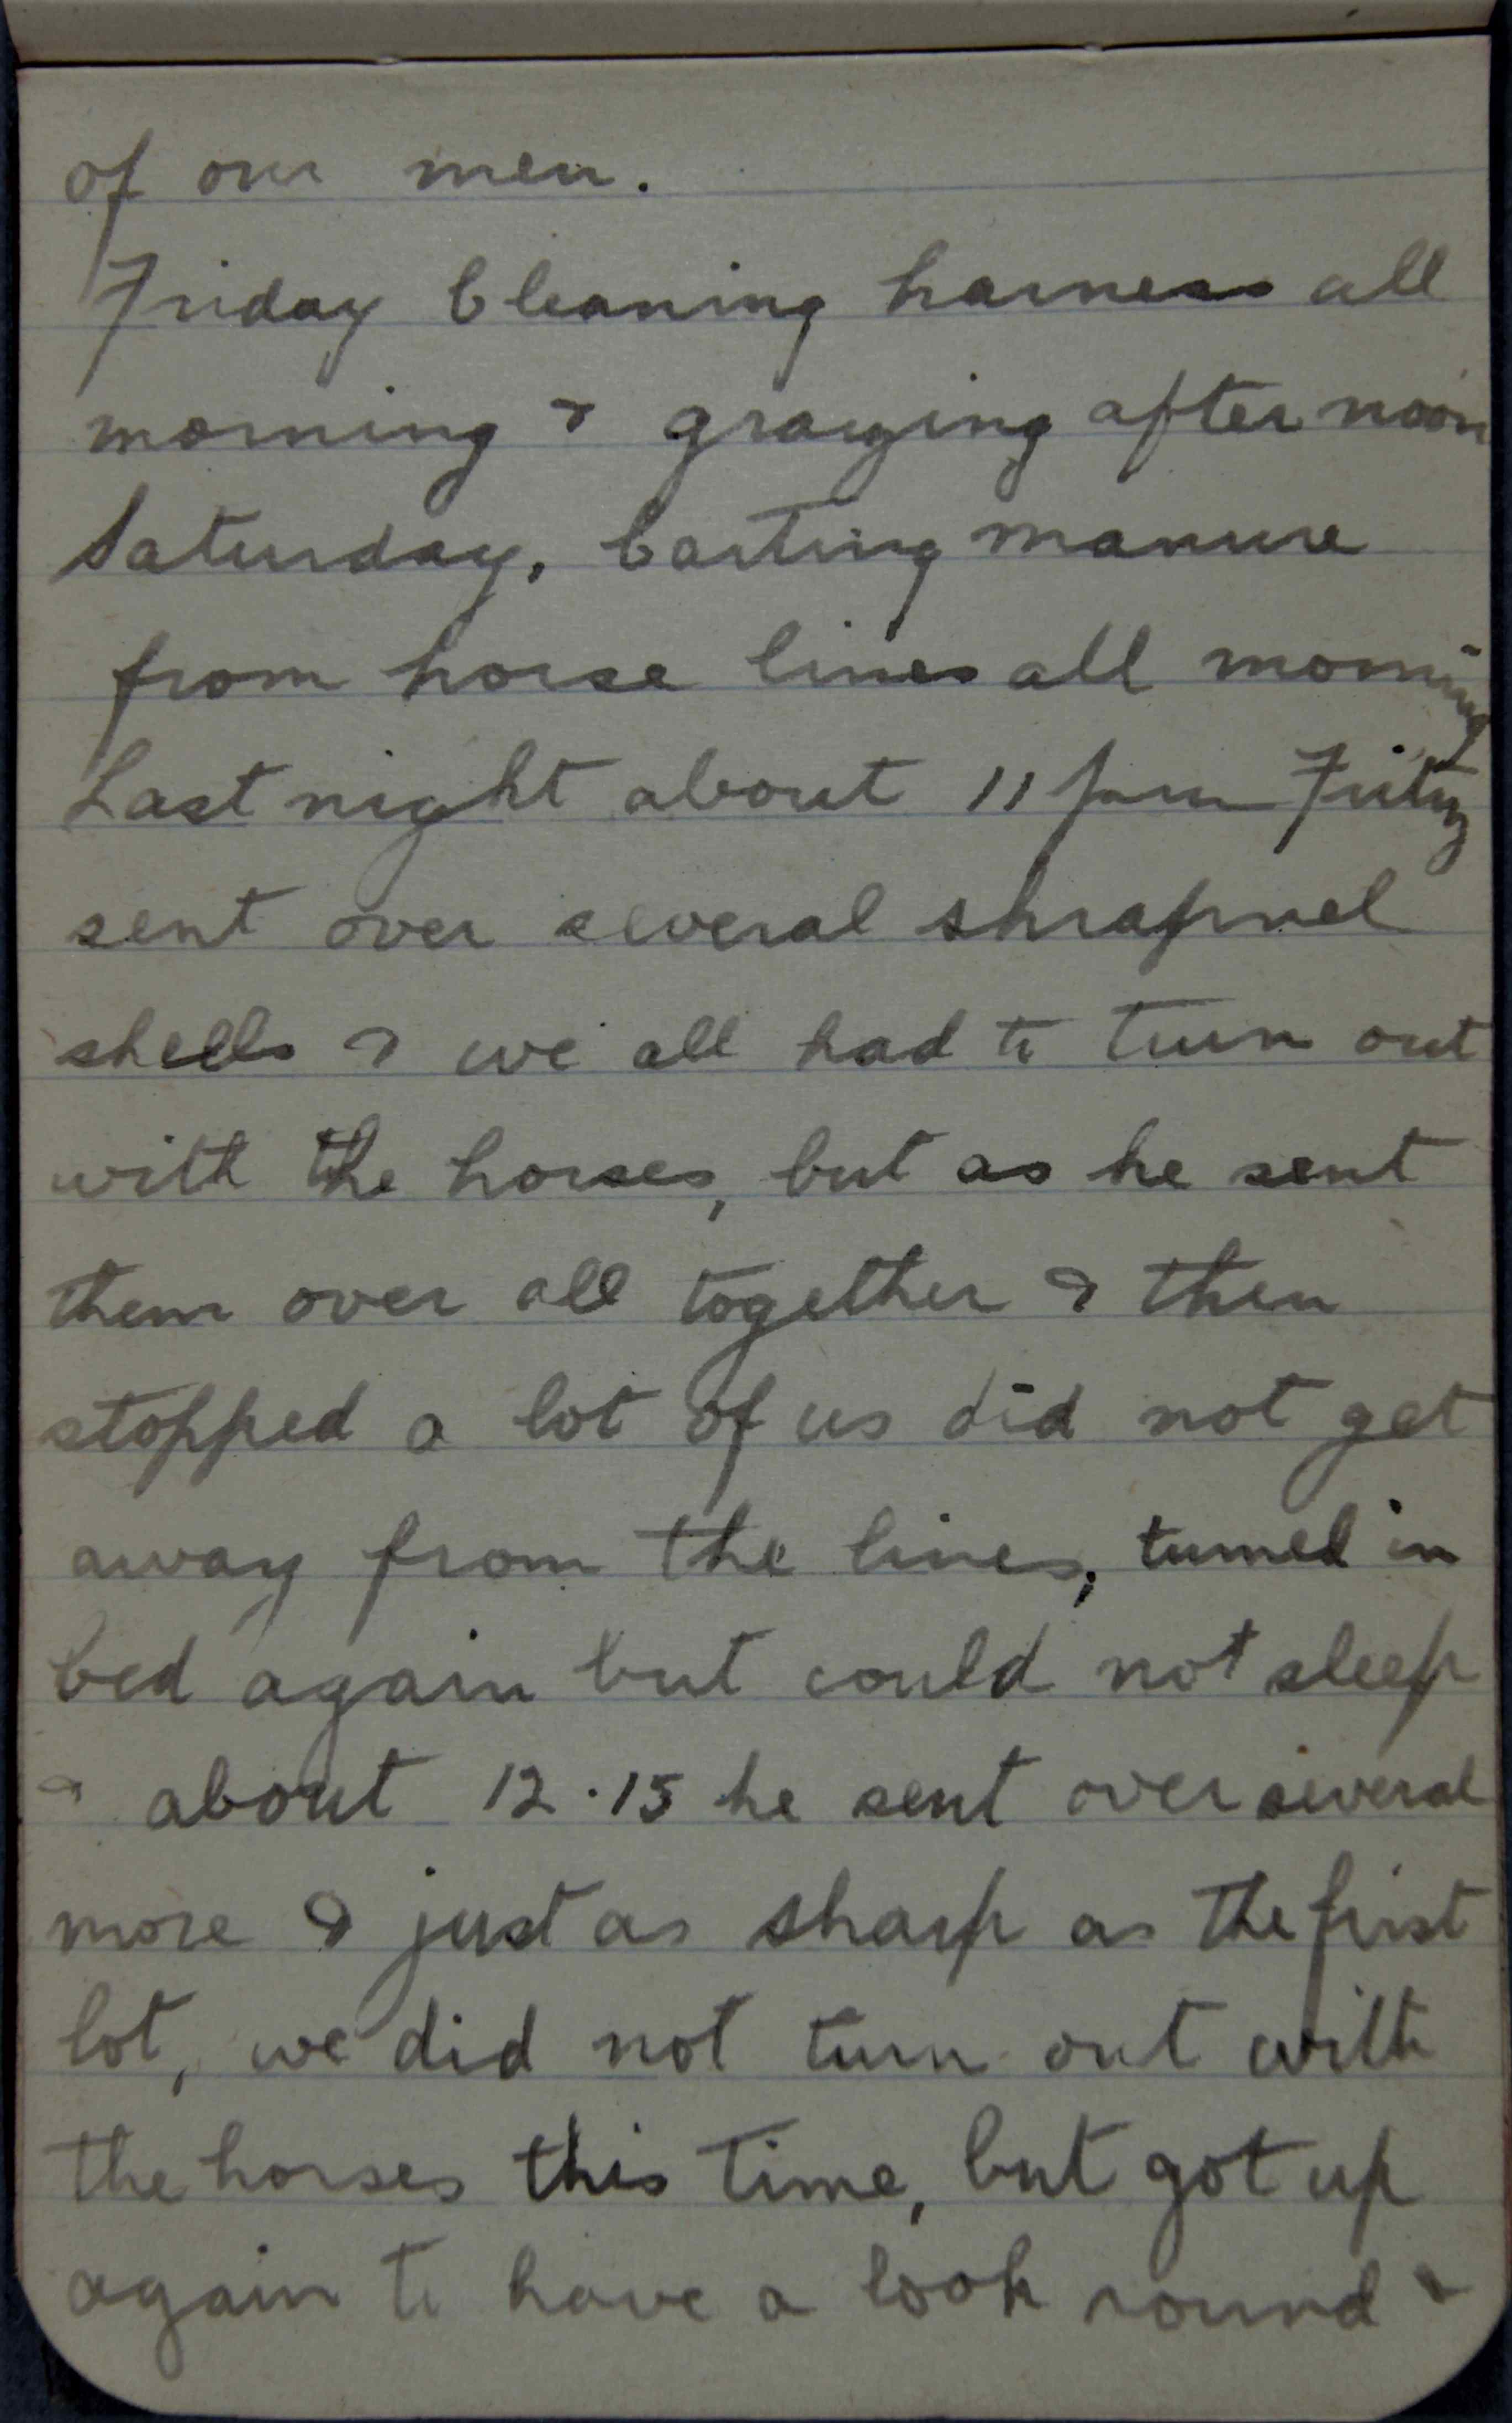 of our men.
Friday Cleaning harness all
morning & grazing afternoon
Saturday, Carting manure
from horse lines all morning
Last night about 11 pm Fritz
sent over several shrapnel
shells & we all had to turn out
with the horses, but as he sent
them over all together & then
stopped a lot of us did not get
away from the lines, turned in
bed again but could not sleep
& about 12.15 he sent over several
more & just as sharp as the first
lot, we did not turn out with
the horses this time, but got up
again to have a look round &